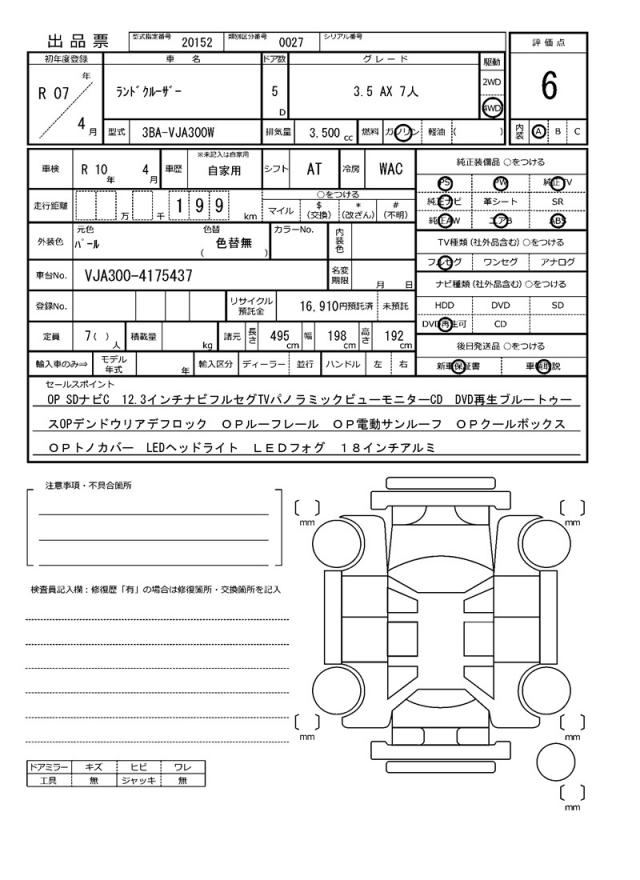 出品票
型式指定番号 20152 類別区分番号 0027 シリアル番号
評価点
6
内装 A B C
初年度登録 車名 ドア数 グレード 駆動
R 07 年 4 月
ﾗﾝﾄﾞｸﾙｰｻﾞｰ
5 D
3.5 AX 7人
2WD
4WD
型式 3BA-VJA300W 排気量 3.500 cc 燃料 ガソリン 軽油 ( )
車検 R 10 年 4 月 車歴 ※未記入は自家用 自家用 シフト AT 冷房 WAC
走行距離 万 千 199 km
○をつける
マイル $(交換) *(改ざん) #(不明)
外装色 元色 ﾊﾟｰﾙ 色替 ( 色替無 ) カラーNo. 内装色
車台No. VJA300-4175437 名変期限 月 日
登録No. リサイクル預託金 16,910円預託済 未預託
定員 7( )人 積載量 kg 諸元 長さ 495cm 幅 198cm 高さ 192cm
輸入車のみ⇒ モデル年式 年 輸入区分 ディーラー 並行 ハンドル 左 右
純正装備品 ○をつける
PS PW 純正TV
純正ナビ 革シート SR
純正AW エアB ABS
TV種類 (社外品含む) ○をつける
フルセグ ワンセグ アナログ
ナビ種類 (社外品含む) ○をつける
HDD DVD SD
DVD再生可 CD
後日発送品 ○をつける
新車保証書 車輌取説
セールスポイント
OP SDナビC 12.3インチナビフルセグTVパノラミックビューモニターCD DVD再生ブルートゥー
スOPデンドウリアデフロック OPルーフレール OP電動サンルーフ OPクールボックス
OPトノカバー LEDヘッドライト LEDフォグ 18インチアルミ
注意事項・不具合箇所
検査員記入欄：修復歴「有」の場合は修復箇所・交換箇所を記入
ドアミラー キズ ヒビ ワレ
工具 無 ジャッキ 無
mm
mm
mm
mm
mm